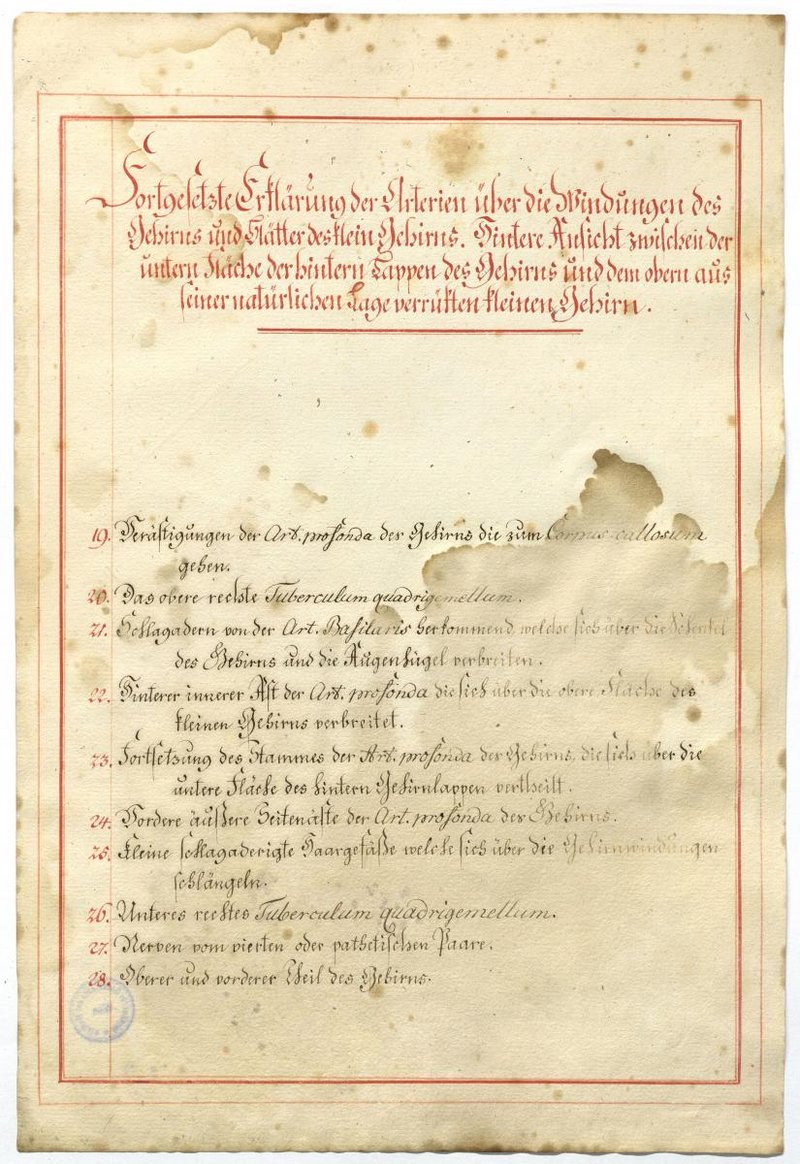 Fortgesetzte Erklärung der Arterien über die Windungen des
Gehirns und Blätter des klein Gehirns. Hintere Ansicht zwischen der
untern Fläche der hintern Lappen des Gehirns und dem obern aus
seiner natürlichen Lage verrükten kleinen Gehirn.
19. Verästigungen der Art. profonda des Gehirns die zum Corpus callosum
gehen.
20. Das obere rechte Tuberculum quadrigemellum.
21. Schlagadern von der Art. Basilaris herkommend, welche sich über die Schenkel
des Gehirns und die Augenhügel verbreiten.
22. Hinterer innerer Ast der Art. profonda die sich über die obere Fläche des
kleinen Gehirns verbreitet.
23. Fortsetzung des Stammes der Art. profonda des Gehirns, die sich über die
untere Fläche des hintern Gehirnlappen vertheilt.
24. Vordere äußere Seitenäste der Art. profonda des Gehirns.
25. Kleine schlagaderigte Haargefäße welche sich über die Gehirnwindungen
schlängeln.
26. Unteres rechtes Tuberculum quadrigemellum.
27. Nerven vom vierten oder pathetischen Paare.
28. Oberer und vorderer Theil des Gehirns.